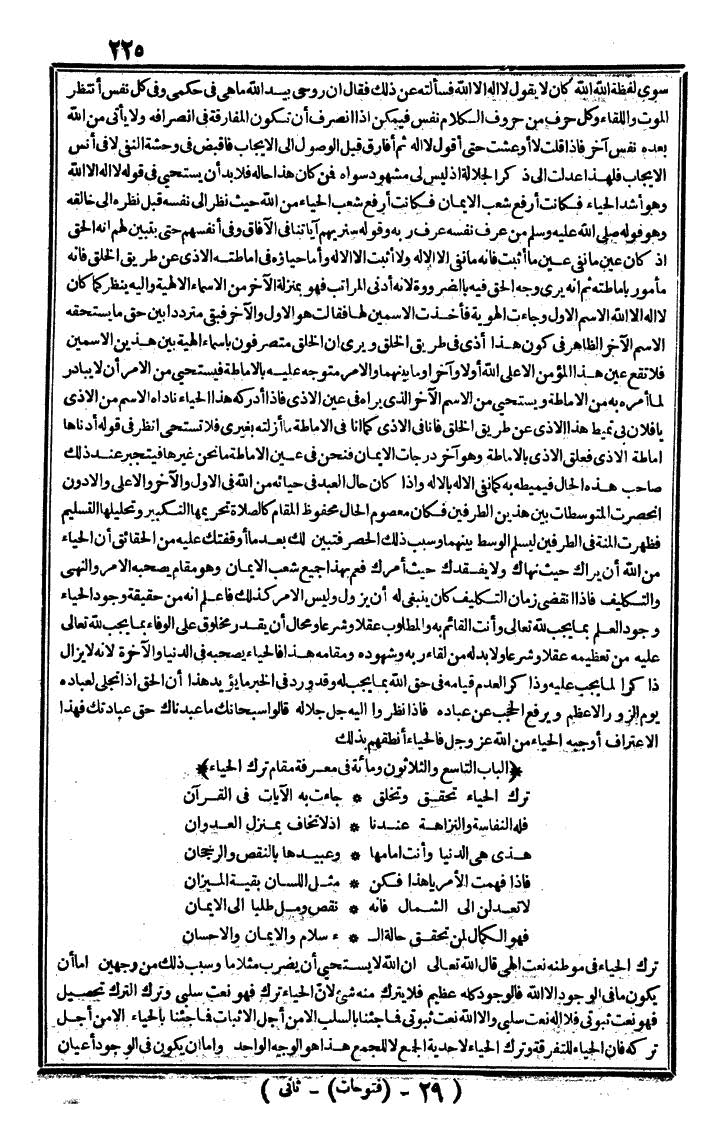 ٢٢٥
سوى لفظة الله الله كان لا يقول لا اله الا الله فسألته عن ذلك فقال ان روحى بيد الله ماهى فى حكمى وفى كل نفس أنتظر
الموت واللقاء وكل حرف من حروف الكلام نفس فيمكن اذا انصرف أن تكون المفارقة فى انصرافه ولا يأتى من الله
بعده نفس آخر فاذا قلت لا أو عشت حتى أقول لا اله ثم أفارق قبل الوصول الى الايجاب فاقبض فى وحشة النفى لا فى أنس
الايجاب فلهذا عدلت الى ذكر الجلالة اذ ليس لى مشهود سواه فمن كان هذا حاله فلا بد أن يستحيى فى قوله لا اله الا الله
وهو أشد الحياء فكانت أرفع شعب الايمان فكانت أرفع شعب الحياء من الله حيث نظر الى نفسه قبل نظره الى خالقه
وهو قوله صلى الله عليه وسلم من عرف نفسه عرف ربه وقوله سنريهم آياتنا فى الآفاق وفى أنفسهم حتى يتبين لهم انه الحق
اذ كان عين ما نفى عين ما أثبت فانه ما نفى الا الاله ولا أثبت الا الاله وأما حياؤه فى اماطته الاذى عن طريق الخلق فانه
مأمور باماطته ثم انه يرى وجه الحق فيه بالضرورة لانه أدنى المراتب فهو بمنزلة الآخر من الاسماء الالهية واليه ينظر كما كان
لا اله الا الله الاسم الاول وجاءت الهوية فأخذت الاسمين لها فقالت هو الاول والآخر فبقى مترددا بين حق ما يستحقه
الاسم الآخر الظاهر فى كون هذا أذى فى طريق الخلق ويرى ان الخلق متصرفون باسماء الهية بين هذين الاسمين
فلا تقع عين هذا المؤمن الا على الله أولا وآخرا وما بينهما والامر متوجه عليه بالاماطة فيستحيى من الامر أن لا يبادر
لما أمره به من الاماطة ويستحيى من الاسم الآخر الذى يراه فى عين الاذى فاذا أدركه هذا الحياء ناداه الاسم من الاذى
يا فلان بى تميط هذا الاذى عن طريق الخلق فانا فى الاذى كما انا فى الاماطة ما أزلته بغيرى فلا تستحى انظر فى قوله أدناها
اماطة الاذى فعلق الاذى بالاماطة وهو آخر درجات الايمان فنحن فى عين الاماطة ما نحن غيرها فيتجبر عند ذلك
صاحب هذه الحال فيميطه به كما نفى الاله بالاله واذا كان حال العبد فى حيائه من الله فى الاول والآخر والاعلى والادون
انحصرت المتوسطات بين هذين الطرفين فكان معصوم الحال محفوظ المقام كالصلاة تحريمها التكبير وتحليلها التسليم
فظهرت المنة فى الطرفين ليسلم الوسط بينهما وسبب ذلك الحصر فتبين لك بعد ما أوقفتك عليه من الحقائق أن الحياء
من الله أن يراك حيث نهاك ولا يفقدك حيث أمرك فعم بهذا جميع شعب الايمان وهو مقام يصحبه الامر والنهى
والتكليف فاذا انقضى زمان التكليف كان ينبغى له أن يزول وليس الامر كذلك فاعلم انه من حقيقة وجود الحياء
وجود العلم بما يجب لله تعالى وأنت القائم به والمطلوب عقلا وشرعا ومحال أن يقدر مخلوق على الوفاء بما يجب لله تعالى
عليه من تعظيمه عقلا وشرعا ولا بد له من لقاء ربه وشهوده ومقامه هذا فالحياء يصحبه فى الدنيا والآخرة لانه لا يزال
ذاكرا لما يجب عليه وذاكرا لعدم قيامه فى حق الله بما يجب له وقد ورد فى الخبر ما يؤيد هذا أن الحق اذا تجلى لعباده
يوم الزور الاعظم ويرفع الحجب عن عباده فاذا نظروا اليه جل جلاله قالوا سبحانك ما عبدناك حق عبادتك فهذا
الاعتراف أوجبه الحياء من الله عز وجل فالحياء أنطقهم بذلك
﴿الباب التاسع والثلاثون ومائة فى معرفة مقام ترك الحياء﴾
ترك الحياء تحقق وتخلق * جاءت به الآيات فى القرآن
فله النفاسة والنزاهة عندنا * اذ لا تخاف بمنزل العدوان
هذى هى الدنيا وأنت امامها * وعبيدها بالنقص والرجحان
فاذا فهمت الأمر يا هذا فكن * مثل اللسان بقية الميزان
لا تعدلن الى الشمال فانه * نقص ومل طلبا الى الايمان
فهو الكمال لمن تحقق حالة الـ * ـسلام والايمان والاحسان
ترك الحياء فى موطنه نعت الهى قال الله تعالى ان الله لا يستحيى أن يضرب مثلا ما وسبب ذلك من وجهين اما أن
يكون ما فى الوجود الا الله فالوجود كله عظيم فلا يترك منه شئ لان الحياء ترك فهو نعت سلبى وترك الترك تحصيل
فهو نعت ثبوتى فلا اله نعت سلبى والا الله نعت ثبوتى فما جئنا بالسلب الا من أجل الاثبات فما جئنا بالحياء الا من أجل
تركه فان الحياء للتفرقة وترك الحياء لاحدية الجمع لا للجمع هذا هو الوجه الواحد واما ان يكون فى الوجود أعيان
( ٢٩ - (فتوحات) - ثانى )